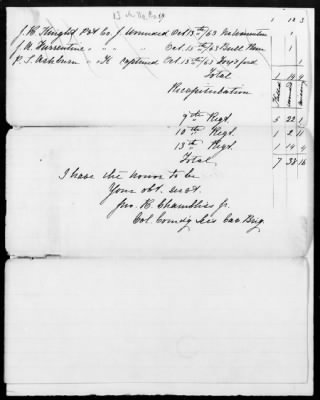 1 14 3
J. W. Knight Pvt Co. J. wounded Oct 13th/63 Nr Warrenton 1
J. W. Turrentine " " " " Oct. 15/63 Bull Run 1
P. S. Ashburn " " K captured Oct. 15th/63 1
Total 1 14 4
Recapitulation
Killed wounded missing
9th Regt. 5 22 1
10th Regt. 1 2 11
13th Regt. 1 14 4
Total 7 38 16
I have the honor to be
Your obt. servt.
Jno. R. Chambliss Jr.
Col. Comdg Lees Cav. Brig.